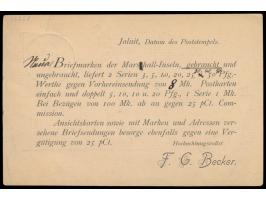 Jaluit, Datum des Poststempels.
Briefmarken der Marshall-Inseln, gebraucht und
ungebraucht, liefert 2 Serien 3, 5, 10, 20, 25, 50 Pfg.-
Werthe gegen Vorhereinsendung von 8 Mk. Postkarten
einfach und doppelt 5, 10, 10 u. 20 Pfg., 1 Serie 1 Mk.
Bei Bezügen von 100 Mk. ab an gegen 25 pCt. Com-
mission.
Ansichtskarten sowie mit Marken und Adressen ver-
sehene Briefsendungen besorge ebenfalls gegen eine Ver-
gütigung von 25 pCt.
Hochachtungsvollst
F. G. Becker.